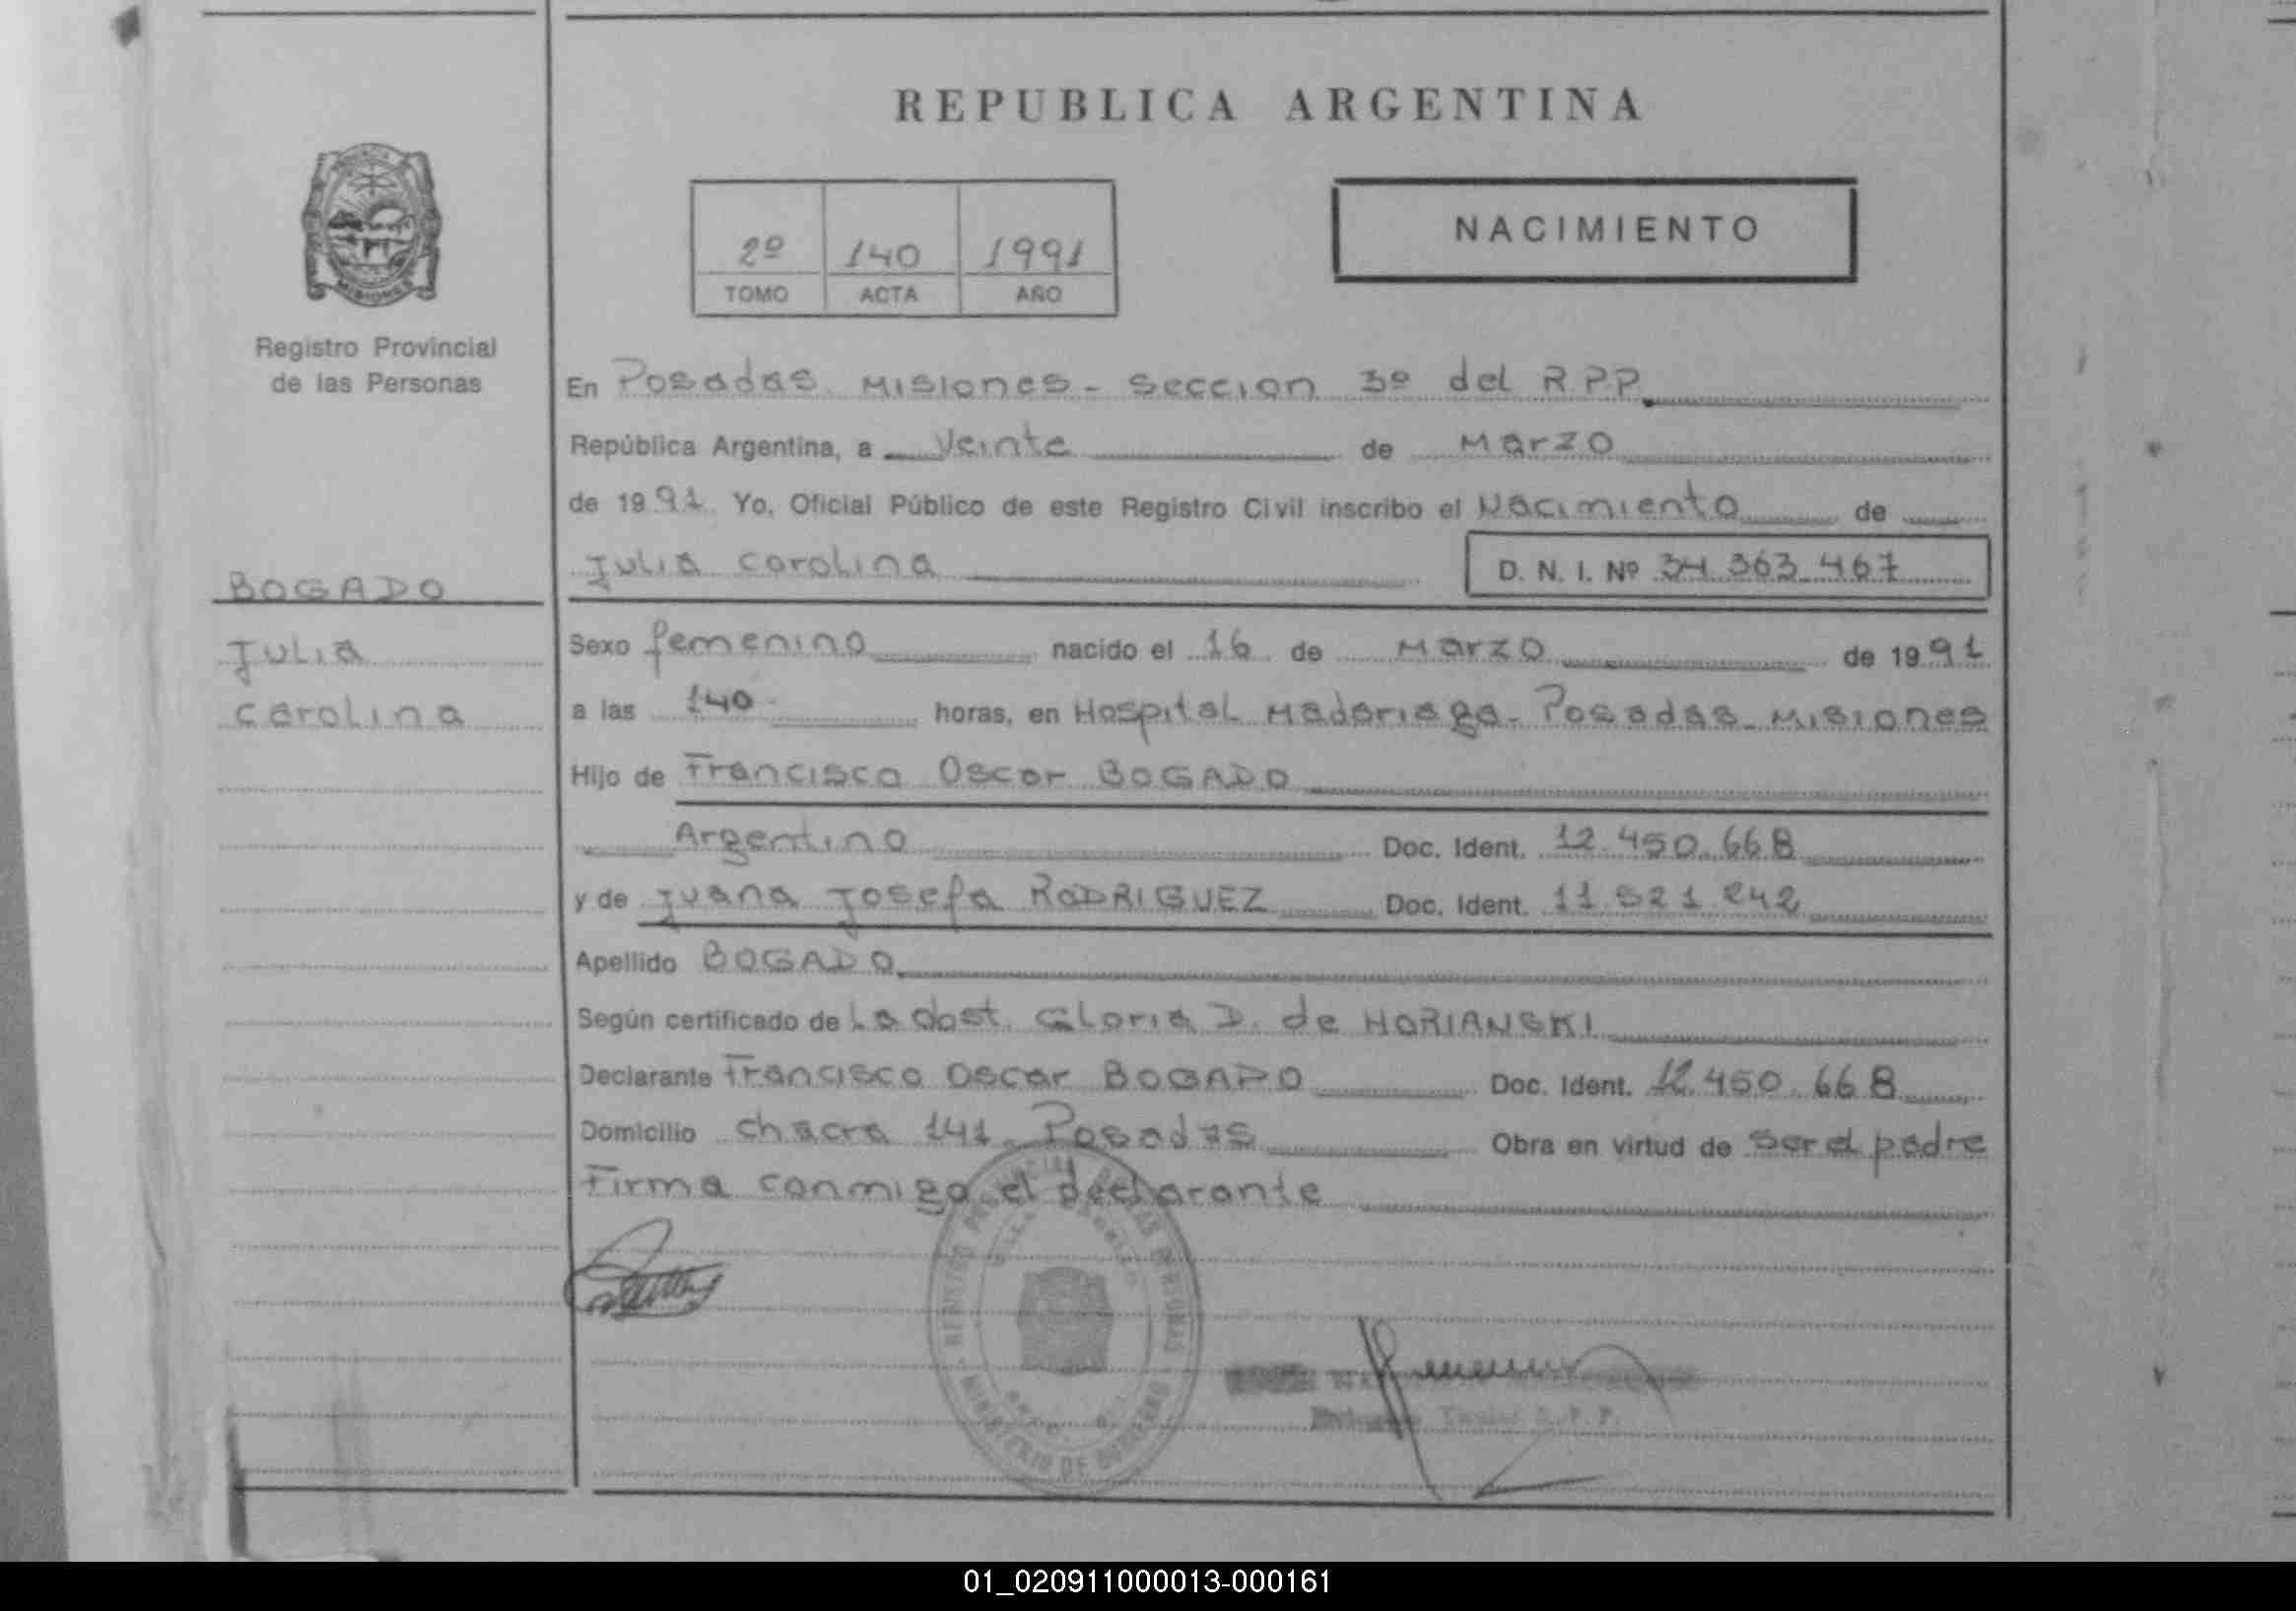 REPUBLICA ARGENTINA
2º 140 1991
TOMO ACTA AÑO
NACIMIENTO
MISIONES
Registro Provincial
de las Personas
BOGADO
Julia
Carolina
En Posadas Misiones - Seccion 3º del R.P.P.
República Argentina, a Veinte de Marzo
de 1991. Yo, Oficial Público de este Registro Civil inscribo el Nacimiento de
Julia Carolina D. N. I. Nº 34.363.467
Sexo femenino nacido el 16 de Marzo de 1991
a las 140 horas, en Hospital Madariaga - Posadas - Misiones
Hijo de Francisco Oscar BOGADO
Argentino Doc. Ident. 12.450.668
y de Juana Josefa RODRIGUEZ Doc. Ident. 11.521.242
Apellido BOGADO
Según certificado de La obst. Gloria D. de HORIANSKI
Declarante Francisco Oscar BOGADO Doc. Ident. 12.450.668
Domicilio Chacra 141. Posadas Obra en virtud de ser el padre
Firma conmigo el declarante
REGISTRO PROVINCIAL DE LAS PERSONAS
MINISTERIO DE GOBIERNO
Titular R.P.P.
01_020911000013-000161